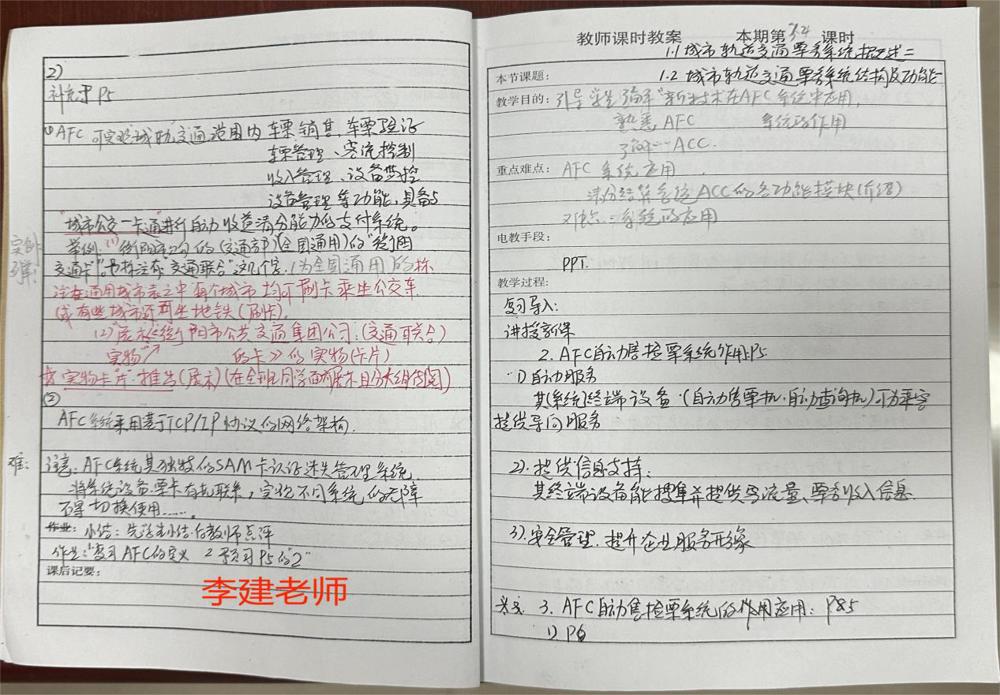 2)
补充 P5
① AFC 可实现城轨交通范围内 车票销售、车票验证
车票管理、客流控制
收入管理、设备监控
设备管理等功能,具备与
城市公交一卡通进行自动收益清分能力的支付系统。
举例:(1) 的(交通部)(全国通用)的
交通卡 "交通联合"这几个字,(为全国通用)的标
实例
注在通用城市表之中每个城市均可刷卡乘坐公交车
或有些城市还可坐地铁(刷卡)。
(2)展示《衡阳市公共交通集团公司:(交通联合)
实物 的卡》的实物(卡片)
"实物卡片"推告(展示)(在全班同学面前展示且分大组传阅)
②
AFC系统采用基于TCP/IP协议的网络架构.
难:
注意:AFC系统其独特的SAM卡认证 管理系统
将系统设备、票卡有机联系,实现不同系统的无障
碍切换使用……
作业: 小结:先学生小结,后教师点评
作业:"复习AFC的定义 2 预习P5的"2"
课后记要:
李建老师
教师课时教案 本期第3.4课时
1.1 城市轨道交通票务系统概述二
本节课题: 1.2 城市轨道交通票务系统结构及功能
教学目的: 引导学生 "新技术在AFC系统中应用,
熟悉 AFC 系统的作用
了解一 ACC.
重点难点: AFC 系统应用
清分结算系统ACC的各功能模块(介绍)
难点:系统的应用
电教手段:
PPT.
教学过程:
复习导入:
讲授新课
2. AFC自动售检票系统作用P5
1) 自动服务
其(系统)终端设备·(自动售票机·自动查询机)可为乘客
提供导向服务
2). 提供信息支持:
其终端设备能搜集并提供客流量、票务收入信息.
3). 安全管理. 提升企业服务形象
3. AFC自动售检票系统的作用应用: P85
1) P6